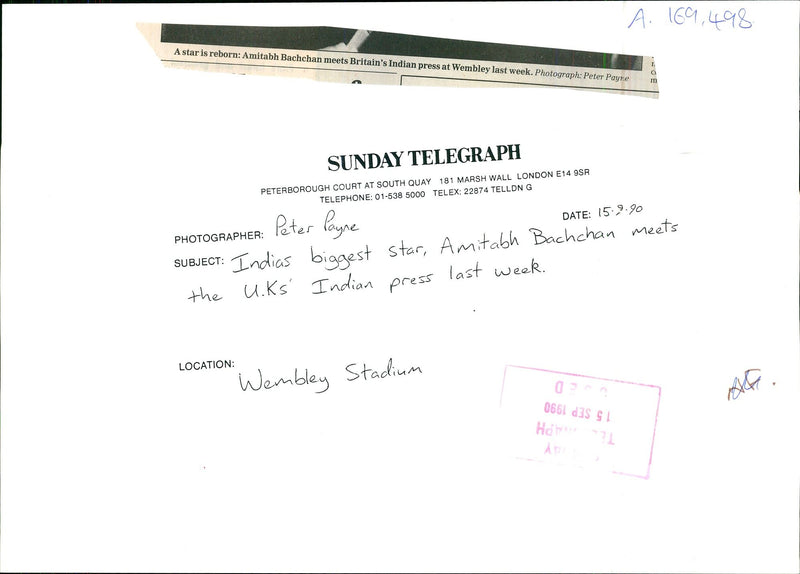 A. 169,498
A star is reborn: Amitabh Bachchan meets Britain's Indian press at Wembley last week. Photograph: Peter Payne
SUNDAY TELEGRAPH
PETERBOROUGH COURT AT SOUTH QUAY 181 MARSH WALL LONDON E14 9SR
TELEPHONE: 01-538 5000 TELEX: 22874 TELLDN G
PHOTOGRAPHER: Peter Payne DATE: 15.9.90
SUBJECT: Indias biggest star, Amitabh Bachchan meets
the U.Ks' Indian press last week.
LOCATION: Wembley Stadium
15 SEP 1990